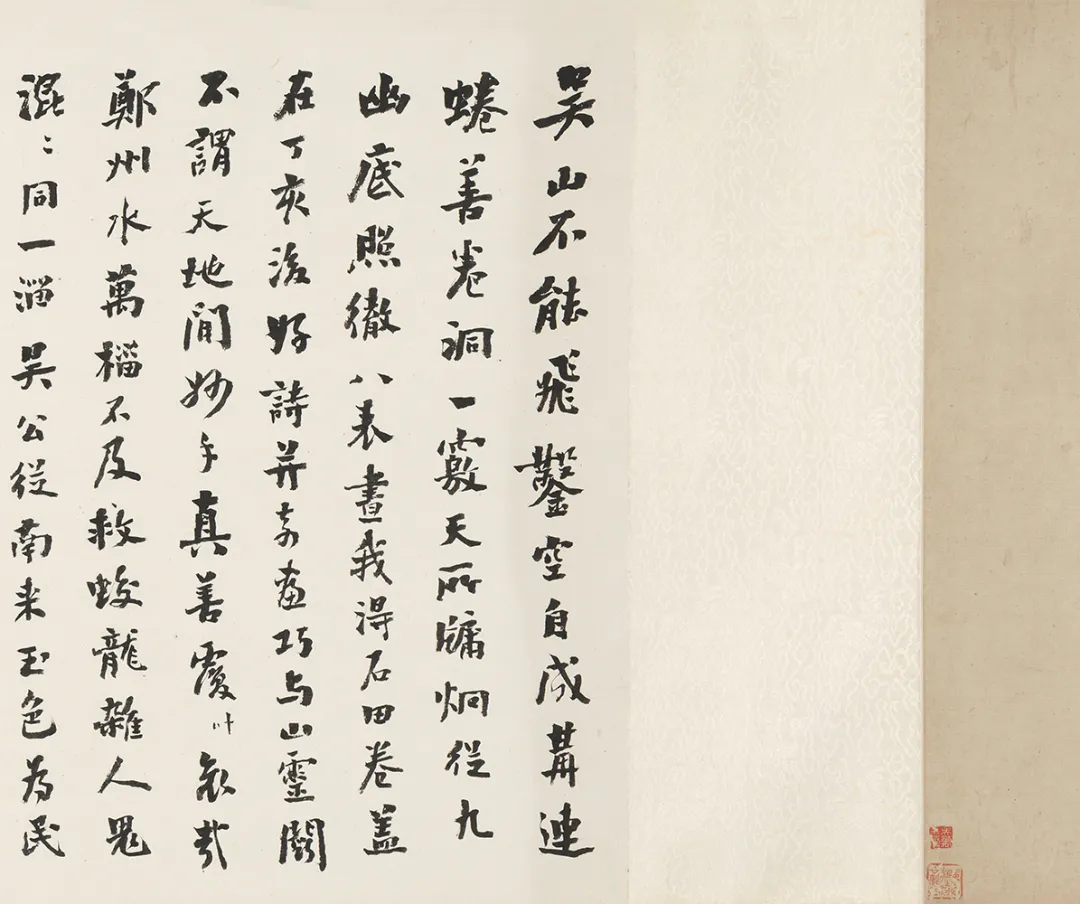 吴山不能飛鑿空自成冓連
蜷善卷洞一竅天所牖炯從九
幽底照徹八表晝我得石田卷蓋
在丁亥後好詩并奇畫巧与山靈鬭
不謂天地間妙手真善覆叶哀哉
鄭州水萬椔不及救蛟龍雜人鬼
混〻同一淄吴公從南来玉色為民